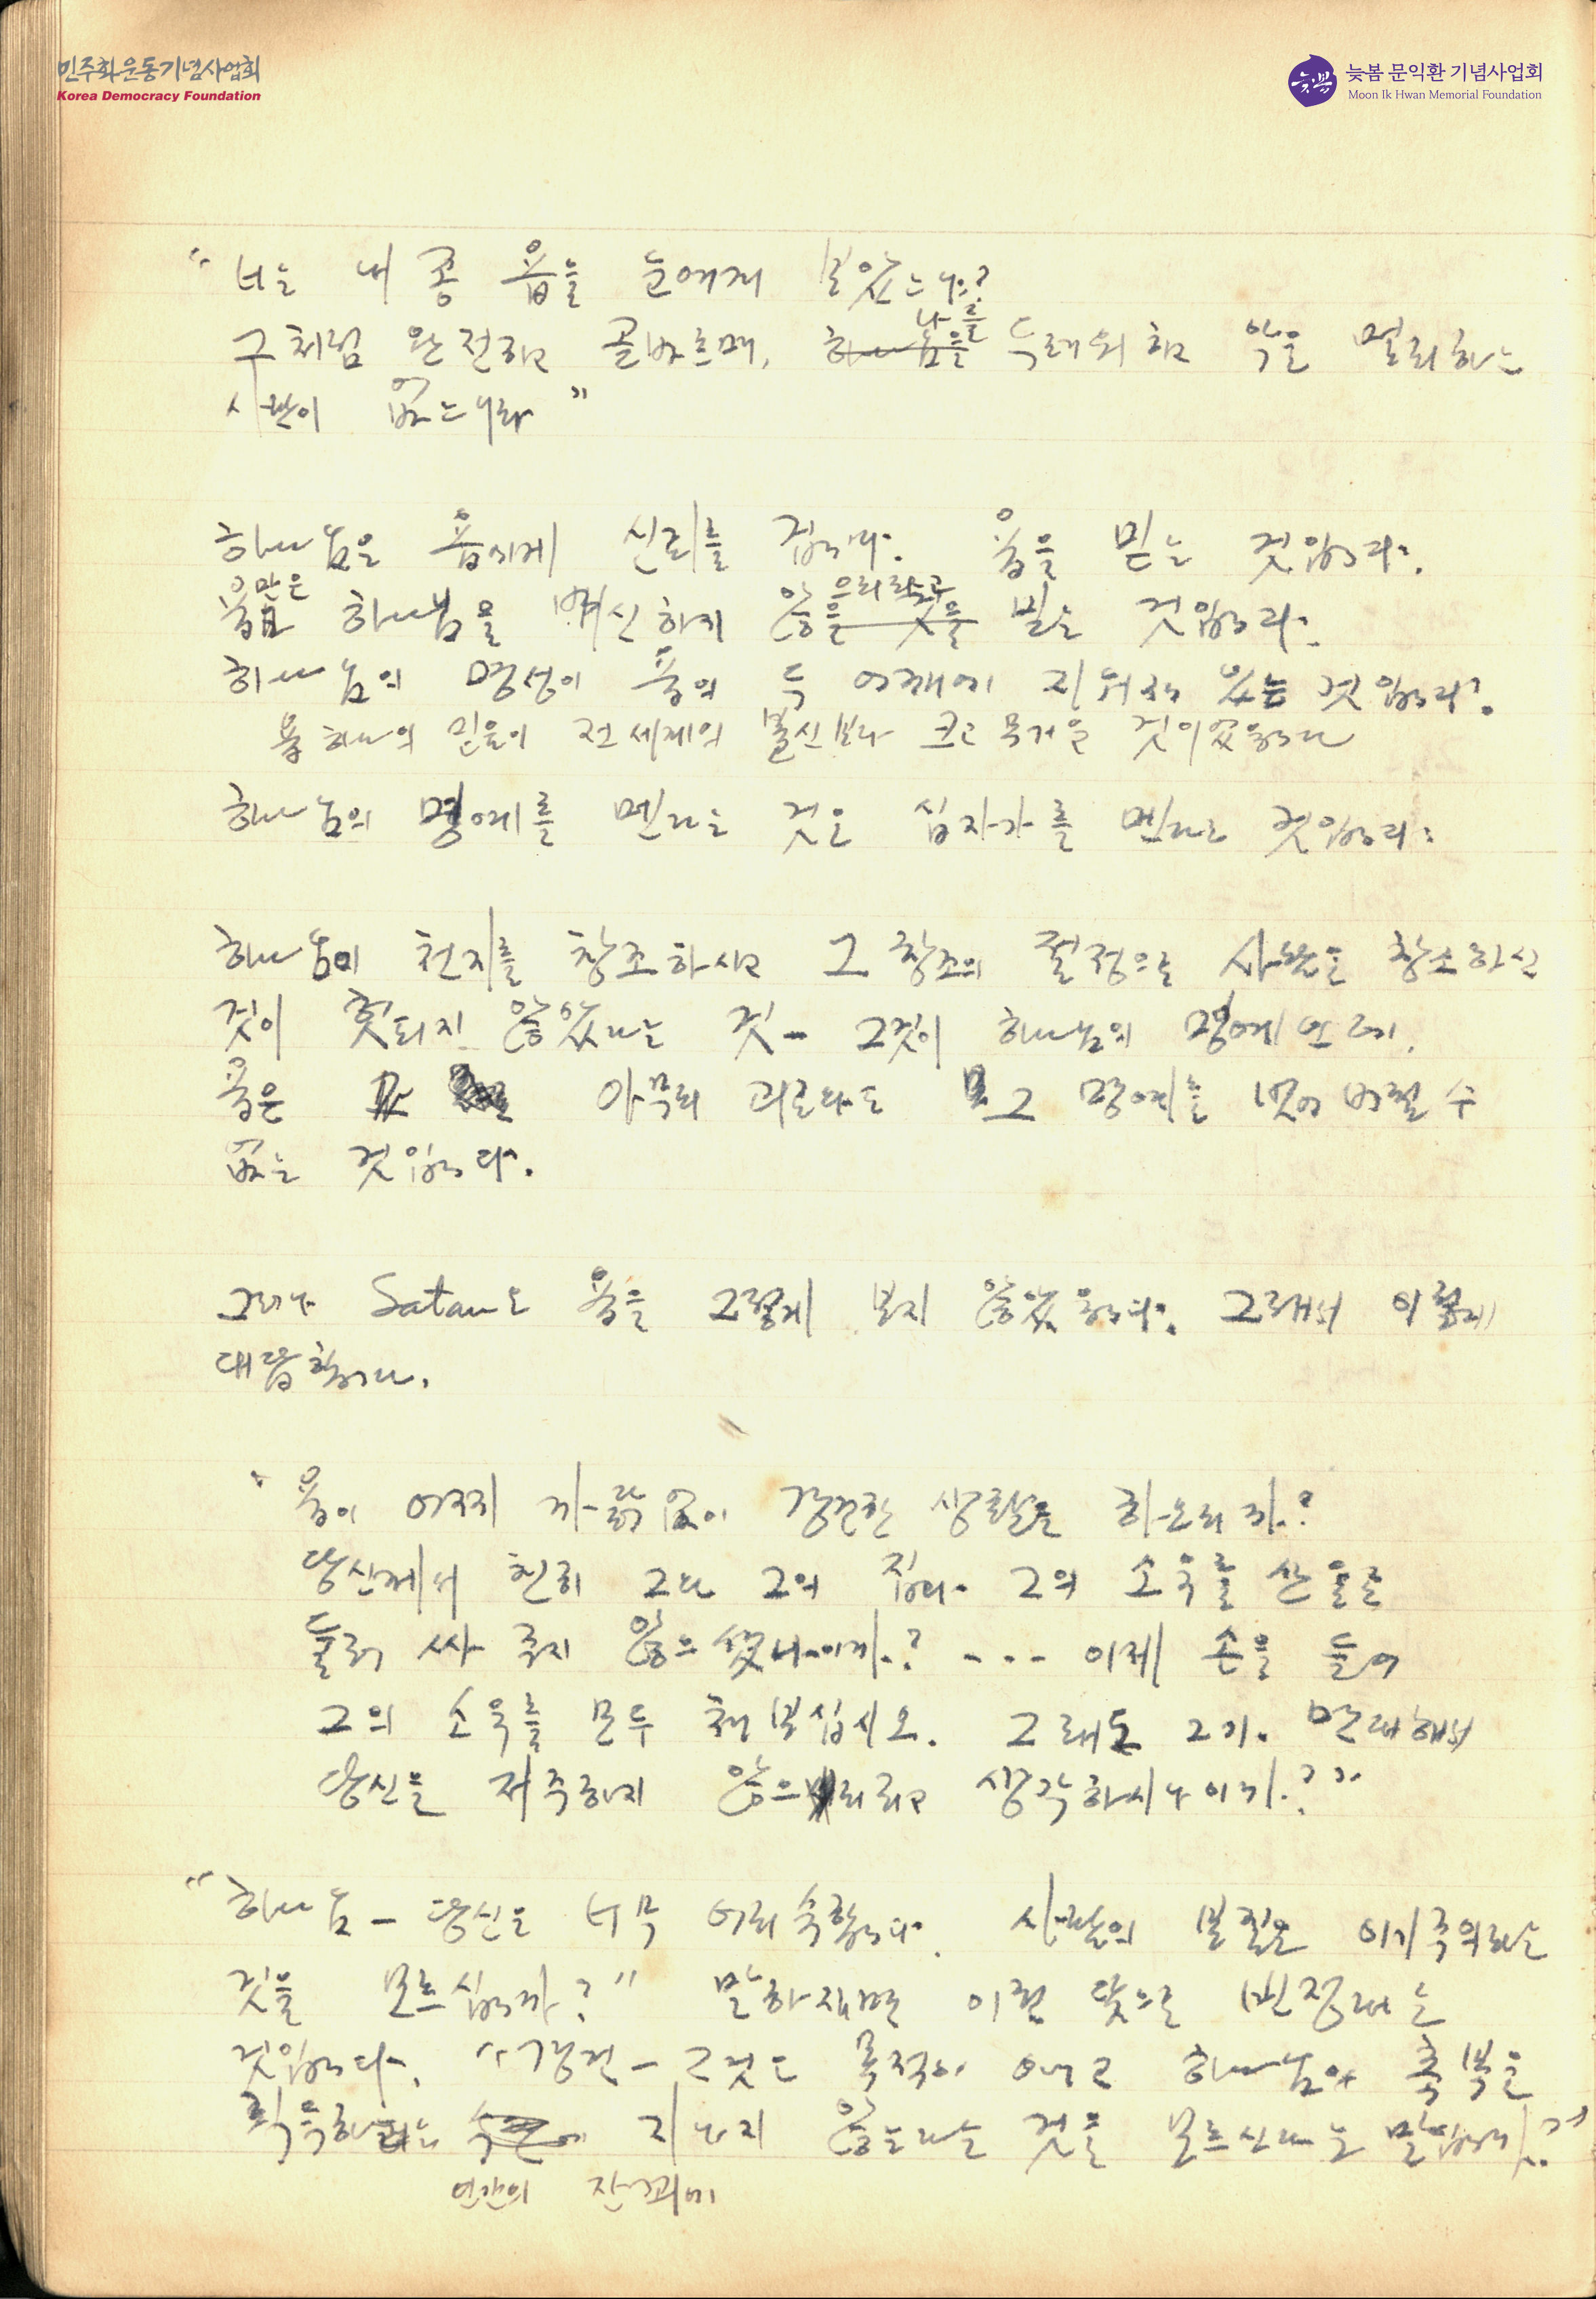 민주화운동기념사업회
Korea Democracy Foundation
늦봄 문익환 기념사업회
Moon Ik Hwan Memorial Foundation
"너는 내 종 욥을 눈여겨 보았느냐?
나를
그처럼 완전하고 골바르며, 하나님을 두려워하고 악을 멀리하는
사람이 없느니라"
하나님은 욥에게 신뢰를 겁니다. 욥을 믿는 것입니다.
욥만은 으리라고
하나님을 배신하지 않을 것을 믿는 것입니다.
하나님의 명성이 욥의 두 어깨에 지워져 있는 것입니다.
욥 하나의 믿음이 전 세계의 불신보다 크고 무거운 것이었습니다
하나님의 명예를 멘다는 것은 십자가를 멘다는 것입니다.
하나님이 천지를 창조하시고 그 창조의 절정으로 사람을 창조하신
것이 헛되지 않았다는 것- 그것이 하나님의 명예인데,
욥은 아무리 괴로와도 그 명예를 벗어버릴 수
없는 것입니다.
그러나 Satan은 욥을 그렇게 보지 않았읍니다. 그래서 이렇게
대답합니다.
"욥이 어찌 까닭없이 경건한 생활을 하오리까?
당신께서 친히 그와 그의 집과 그의 소유를 산울로
둘러 싸 주지 않으셨나이까? ... 이제 손을 들어
그의 소유를 모두 쳐보십시오. 그래도 그가 면대해서
당신을 저주하지 않으리라고 생각하시나이까?"
"하나님- 당신은 너무 어리숙합니다. 사람의 본질은 이기주의라는
것을 모르십니까?" 말하자면 이런 뜻으로 빈정대는
것입니다. "경건- 그것도 목적이 아니고 하나님의 축복을
획득하려는 수단에 지나지 않는다는 것을 모르신다는 말입니까?"
인간의 잔꾀에